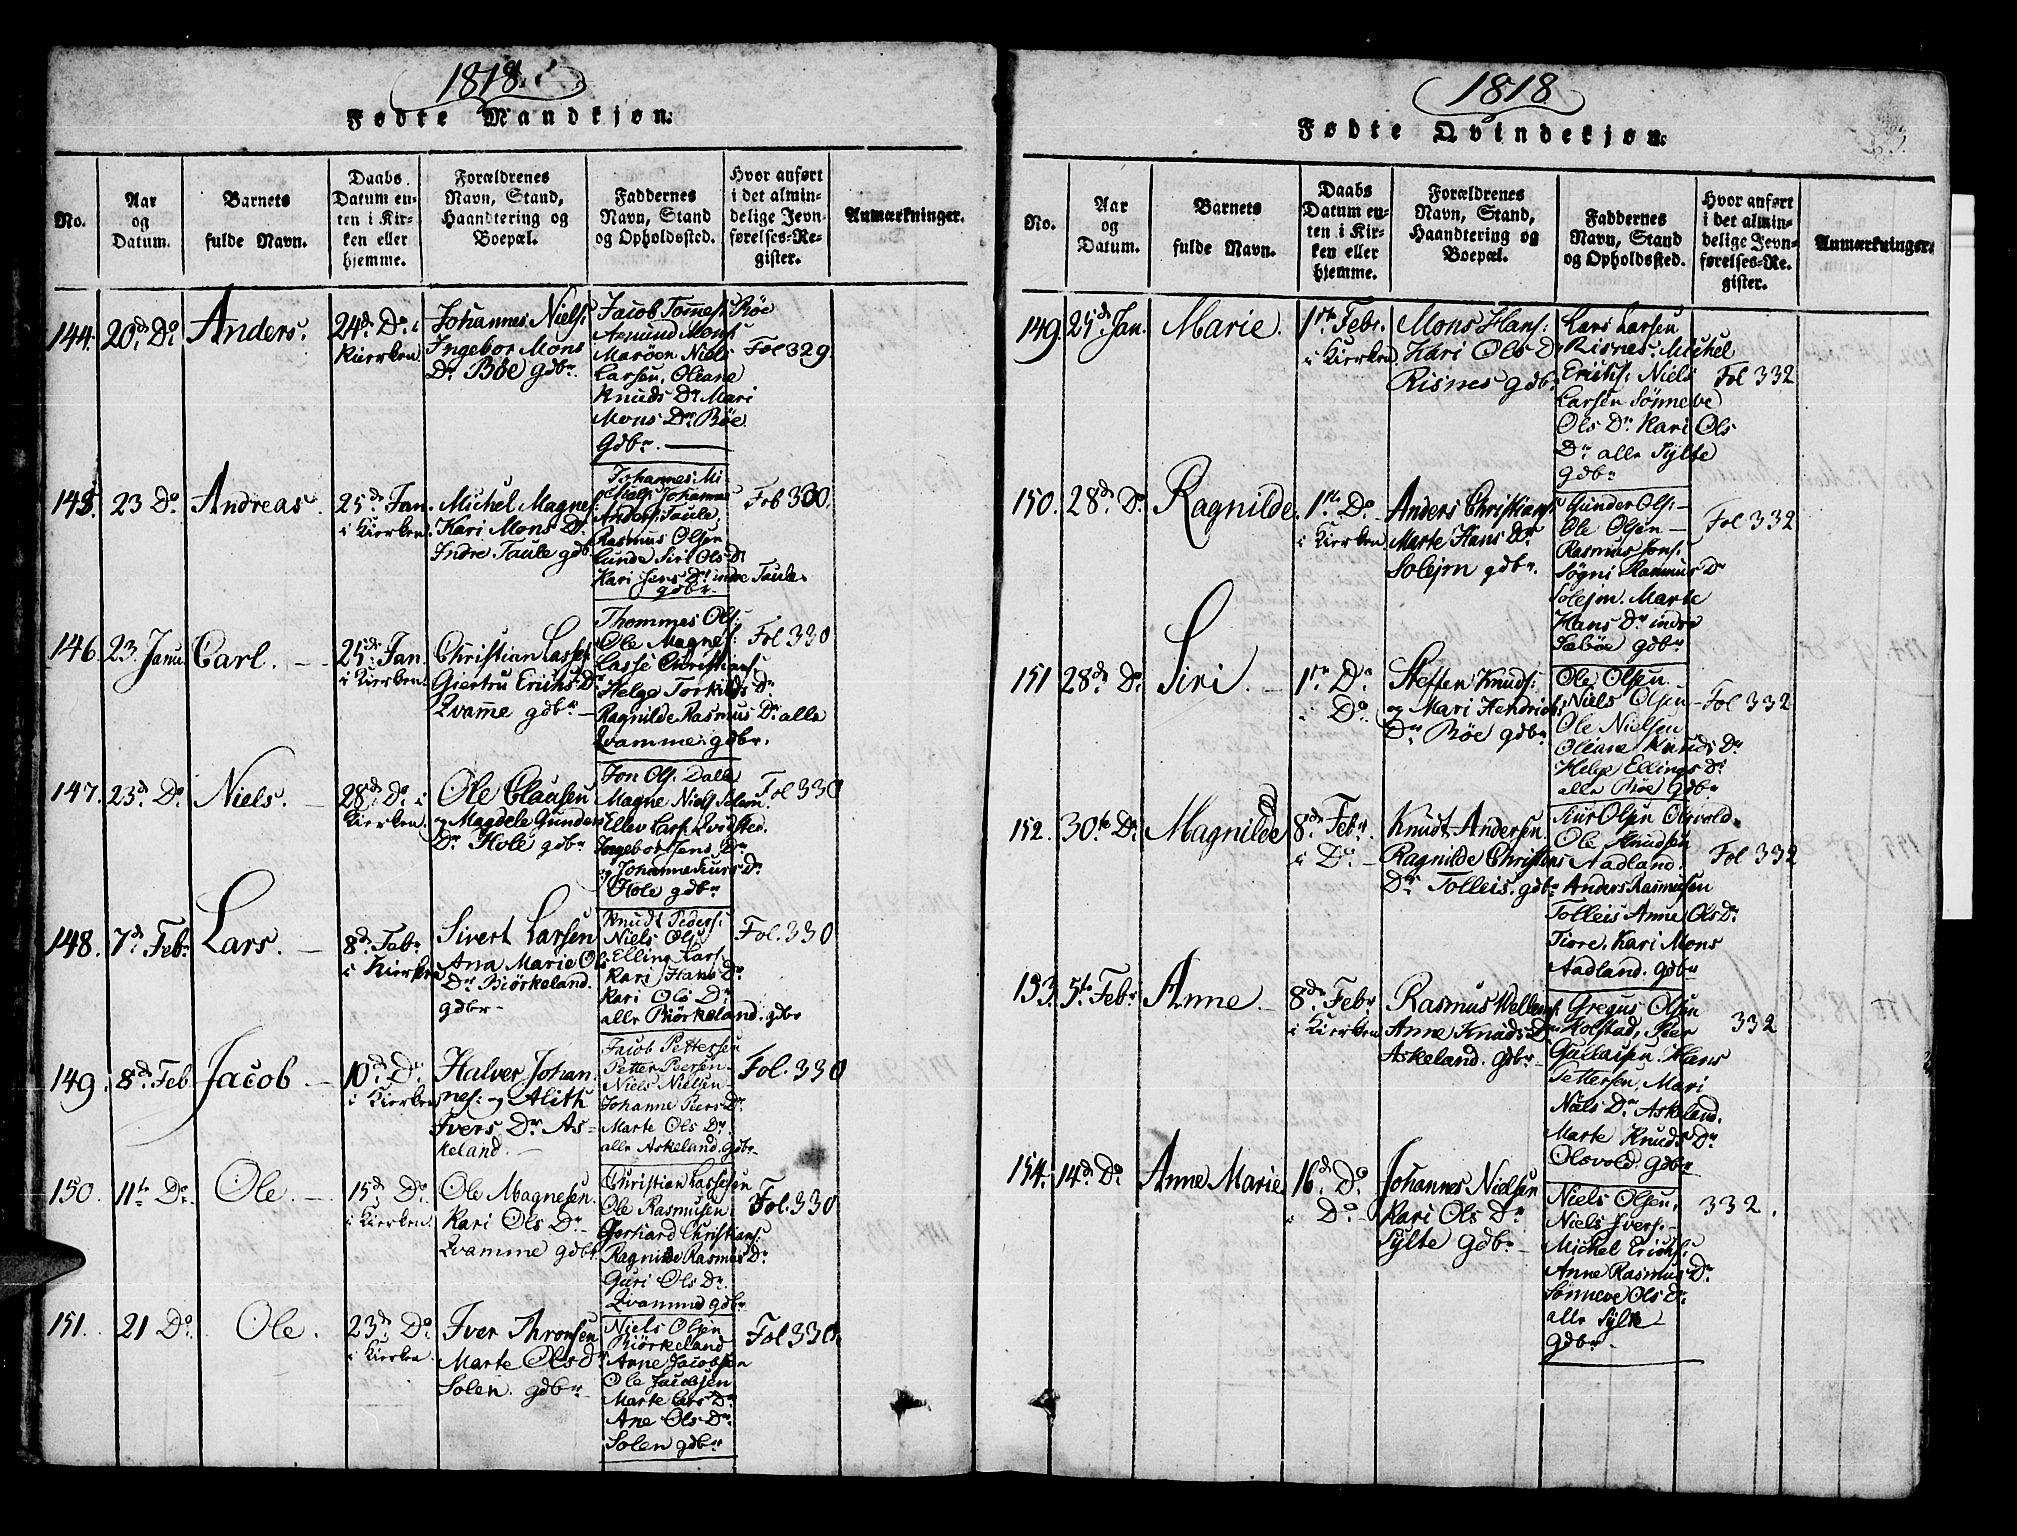 1818.
Fødte Mandkjøn.
No.
Aar
og
Datum.
Barnets
fulde Navn.
Daabs
Datum en-
ten i Kir-
ken eller
hjemme.
Forældrenes
Navn, Stand,
Haandtering og
Boepæl.
Faddernes
Navn, Stand
og Opholdssted.
Hvor anført
i det almin-
delige Jevn-
førelses-Re-
gister.
Anmærkninger.
144. 20de Do. Anders.
24de Do. i
Kierken
Johannes Niels:
Ingebor Mons
Dr. Bøe gdbr.
Jacob Tomes: Røe
Amund Mons:
Marøen Niels
Larsen, Oleane
Knuds Dr. Mari
Mons Dr. Bøe
Gdbr.
Fol 329.
145. 23 Do. Andreas.
25de Jan.
i Kierken
Michel Magnes:
Kari Mons Dr.
Indre Taule gdb.
Johannes Mi-
chels: Johannes
Anders: Taule,
Rasmus Olsen
Lunde Siri Ols Dr.
Kari Jens Dr. indre Taule.
gdbr.
Fol 330.
146. 23. Janu. Carl.
25de Jan.
i Kierken.
Christian Lasses:
Giertru Erichs Dr.
Qvamme gdbr.
Thommes Ols:
Ole Magnes:
Lasse Christians:
Helge Torkilds Dr.
Ragnilde Rasmus Dr. alle
Qvamme. gdbr.
Fol 330
147. 23de Do. Niels.
28de Do. i
Kierken
Ole Clausen
og Magdele Gunders
Dr. Hole gdbr.
Jon Ols: Dale
Magne Niels: Solem.
Ellev Lars: Qvidsted.
Ingebor Jens Dr.
og Johanne Siurs Dr.
Hole gdbr.
Fol 330
148. 7de Febr. Lars.
8de Febr.
i Kierken
Sivert Larsen
Ana Marie Ols
Dr. Biörkeland.
gdbr.
Knudt Peders:
Niels Ols:
Elling Lars:
Kari Hans Dr.
Kari Ols Dr.
alle Biörkeland. gdbr
Fol. 330
149. 8de Feb Jacob
10de Do.
i Kierken
Halver Johan
nes: og Alith
Ivers Dr. As-
keland.
Jacob Pettersen
Petter Peersen
Niels Nielsen
Johanne Peers Dr.
Marte Ols Dr.
alle Askeland. gdbr.
Fol. 330
150. 11te Do. Ole.
15de Do.
i Kierken.
Ole Magnesen
Kari Ols Dr.
Qvamme gdbr.
Christian Lassesen
Ole Rasmusen
Gerhard Christians:
Ragnilde Rasmus Dr.
Guri Ols Dr.
Qvamme gdbr.
Fol. 330
151. 21 Do. Ole.
23de Do.
i Kierken.
Iver Thronsen
Marte Ols Dr.
Solen. gdbr.
Niels Olsen
Biörkeland
Arne Jacobsen
Ole Jacobsen
Marte Lars Dr.
Ane Ols Dr.
Solen gdbr.
Fol 330.
1818
Fødte Qvindekjøn.
No.
Aar
og
Datum.
Barnets
fulde Navn.
Daabs
Datum en-
ten i Kir-
ken eller
hjemme.
Forældrenes
Navn, Stand,
Haandtering og
Boepæl.
Faddernes
Navn, Stand
og Opholdssted.
Hvor anført
i det almin-
delige Jevn-
førelses-Re-
gister.
Anmærkninger.
149. 25de Jan. Marie.
1ste Febr.
i Kierken.
Mons Hans:
Kari Ols Dr
Risnes gdbr.
Lars Larsen
Risnes. Michel
Erichs: Niels
Larsen Sønneve
Ols Dr. Kari Ols
Dr. alle Sylte
gdbr
Fol 332
150. 28de Do. Ragnilde.
1ste Do
i Kierken.
Anders Christians:
Marte Hans Dr.
Solejm gdbr.
Gunder Ols:
Ole Olsen
Rasmus Jons:
Søgni Rasmus Dr
Solejm. Marte
Hans Dr. indre
Sæbøe gdbr
Fol 332
151 28de Do. Siri.
1ste Do.
i Do.
Steffen Knuds:
og Mari Hendrichs
Dr. Bøe gdbr
Ole Olsen.
Niels Olsen
Ole Nielsen
Oleane Knuds Dr
Helge Ellings Dr
alle Bøe Gdbr
Fol 332
152. 30te Do. Magnilde
8de Febr.
i Do.
Knudt Andersen
Ragnilde Christens
Dr. Tolleis. gdbr
Siur Olsen Olsvold.
Ole Knudsen
Aadland.
Anders Rasmusen
Tolleis Anne Ols Dr.
Tiore. Kari Mons
Aadland. gdbr
Fol 332
153. 5te Febr. Anne
8de Febr
i Kierken
Rasmus Hellens:
Anne Knuds Dr.
Askeland. Gdbr.
Gregus Olsen
Kolstad, Peer
Hans
Pettersen, Mari
Niels Dr. Askeland.
Marte Knuds Dr
Olsvold. Gdbr
332
154. 14de Do. Anne Marie.
16de Do.
i Do.
Johannes Nielsen
Kari Ols Dr.
Sylte Gdbr.
Niels Olsen,
Niels Ivers:
Michel Erichs:
Anne Rasmus Dr.
Sønneve Ols Dr.
alle Sylte
gdbr.
332.